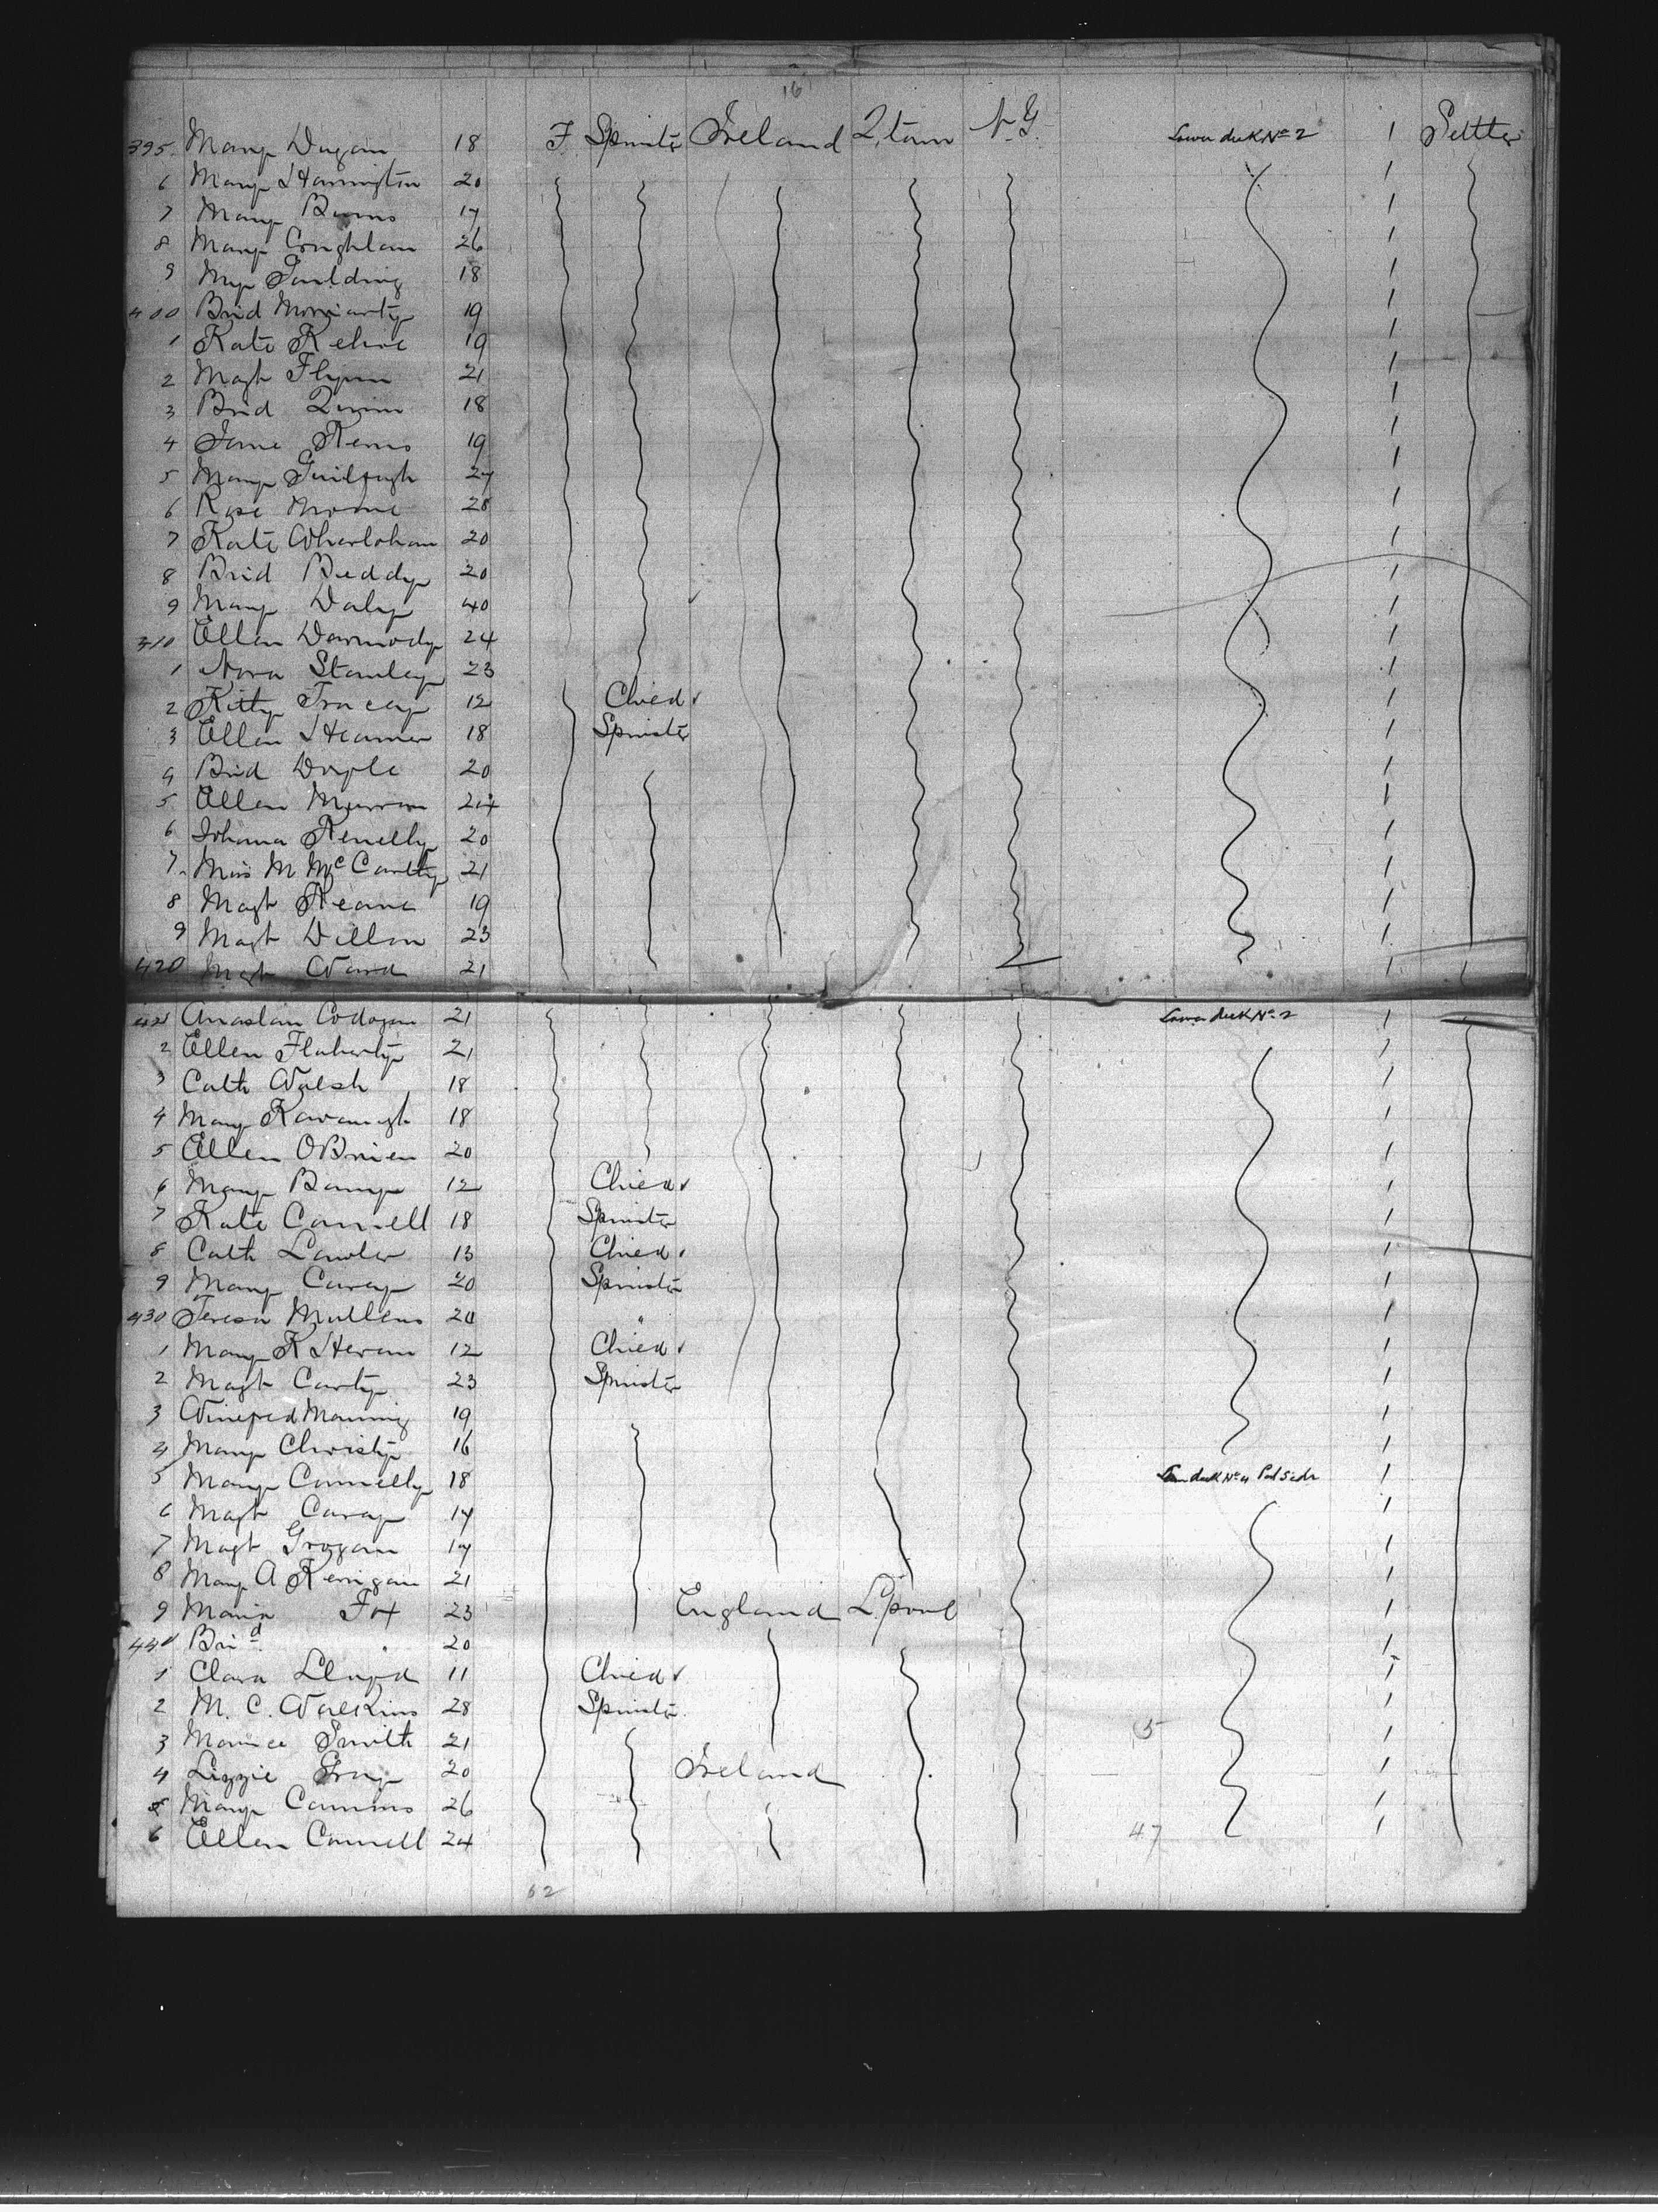 16
395 Mary Dugan 18 F Spinster Ireland Q.town N.Y. Lower deck No 2 1 Settler
6 Mary Harrington 20 1
7 Mary Burns 17 1
8 Mary Coughlan 26 1
9 My Gaulding 18 1
400 Brid Moriarty 19 1
1 Kate Kehoe 19 1
2 Magt Flynn 21 1
3 Brid Quinn 18 1
4 Jane Kerns 19 1
5 Mary 27 1
6 Rose Moore 28 1
7 Kate 20 1
8 Brid Buddy 20 1
9 Mary Daly 40 1
310 Ellen Darmody 24 1
1 Nora Stanley 23 1
2 Kitty Tracey 12 Chied 1
3 Ellen 18 Spinster 1
4 Brid Doyle 20 1
5 Ellen 24 1
6 Johana Kenelly 20 1
7 Miss M McCarthy 21 1
8 Magt Keane 19 1
9 Magt Dillon 23 1
420 Magt Ward 21 1
421 21 Lower deck No 2 1
2 Ellen Flaherty 21 1
3 Cath Walsh 18 1
4 Mary Kavanagh 18 1
5 Ellen OBrien 20 1
6 Mary 12 Chied 1
7 Kate Connell 18 Spinster 1
8 Cath Lawler 13 Chied 1
9 Mary Carey 20 Spinster 1
430 Teresa Mullens 20 " 1
1 Mary K Heran 12 Chied 1
2 Magt Carty 23 Spinster 1
3 Winefred Manning 19 1
4 Mary Christy 16 1
5 Mary Connelly 18 1
6 Magt Carey 17 1
7 Magt Grogan 17 1
8 Mary A Kerrigan 21 1
9 Maria Fox 23 England L'pool 1
440 Brid 20 1
1 Clara Lloyd 11 Chied 1
2 M. C. Walkins 28 Spinster 1
3 Smith 21 15 1
4 Lizzie Gray 20 Ireland 1
5 Mary Cummins 26 1
6 Ellen Connell 24 47 1
62